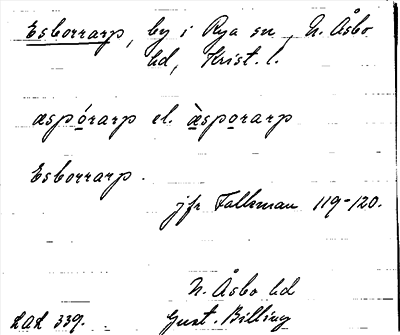 Esborrarp, by i Rya sn, N. Åsbo
hd, Krist. l.
æspórarp el. æ̀sporarp
Esborrarp.
jfr Falkman 119-120.
N. Åsbo hd
LAL 339. Gust. Billing